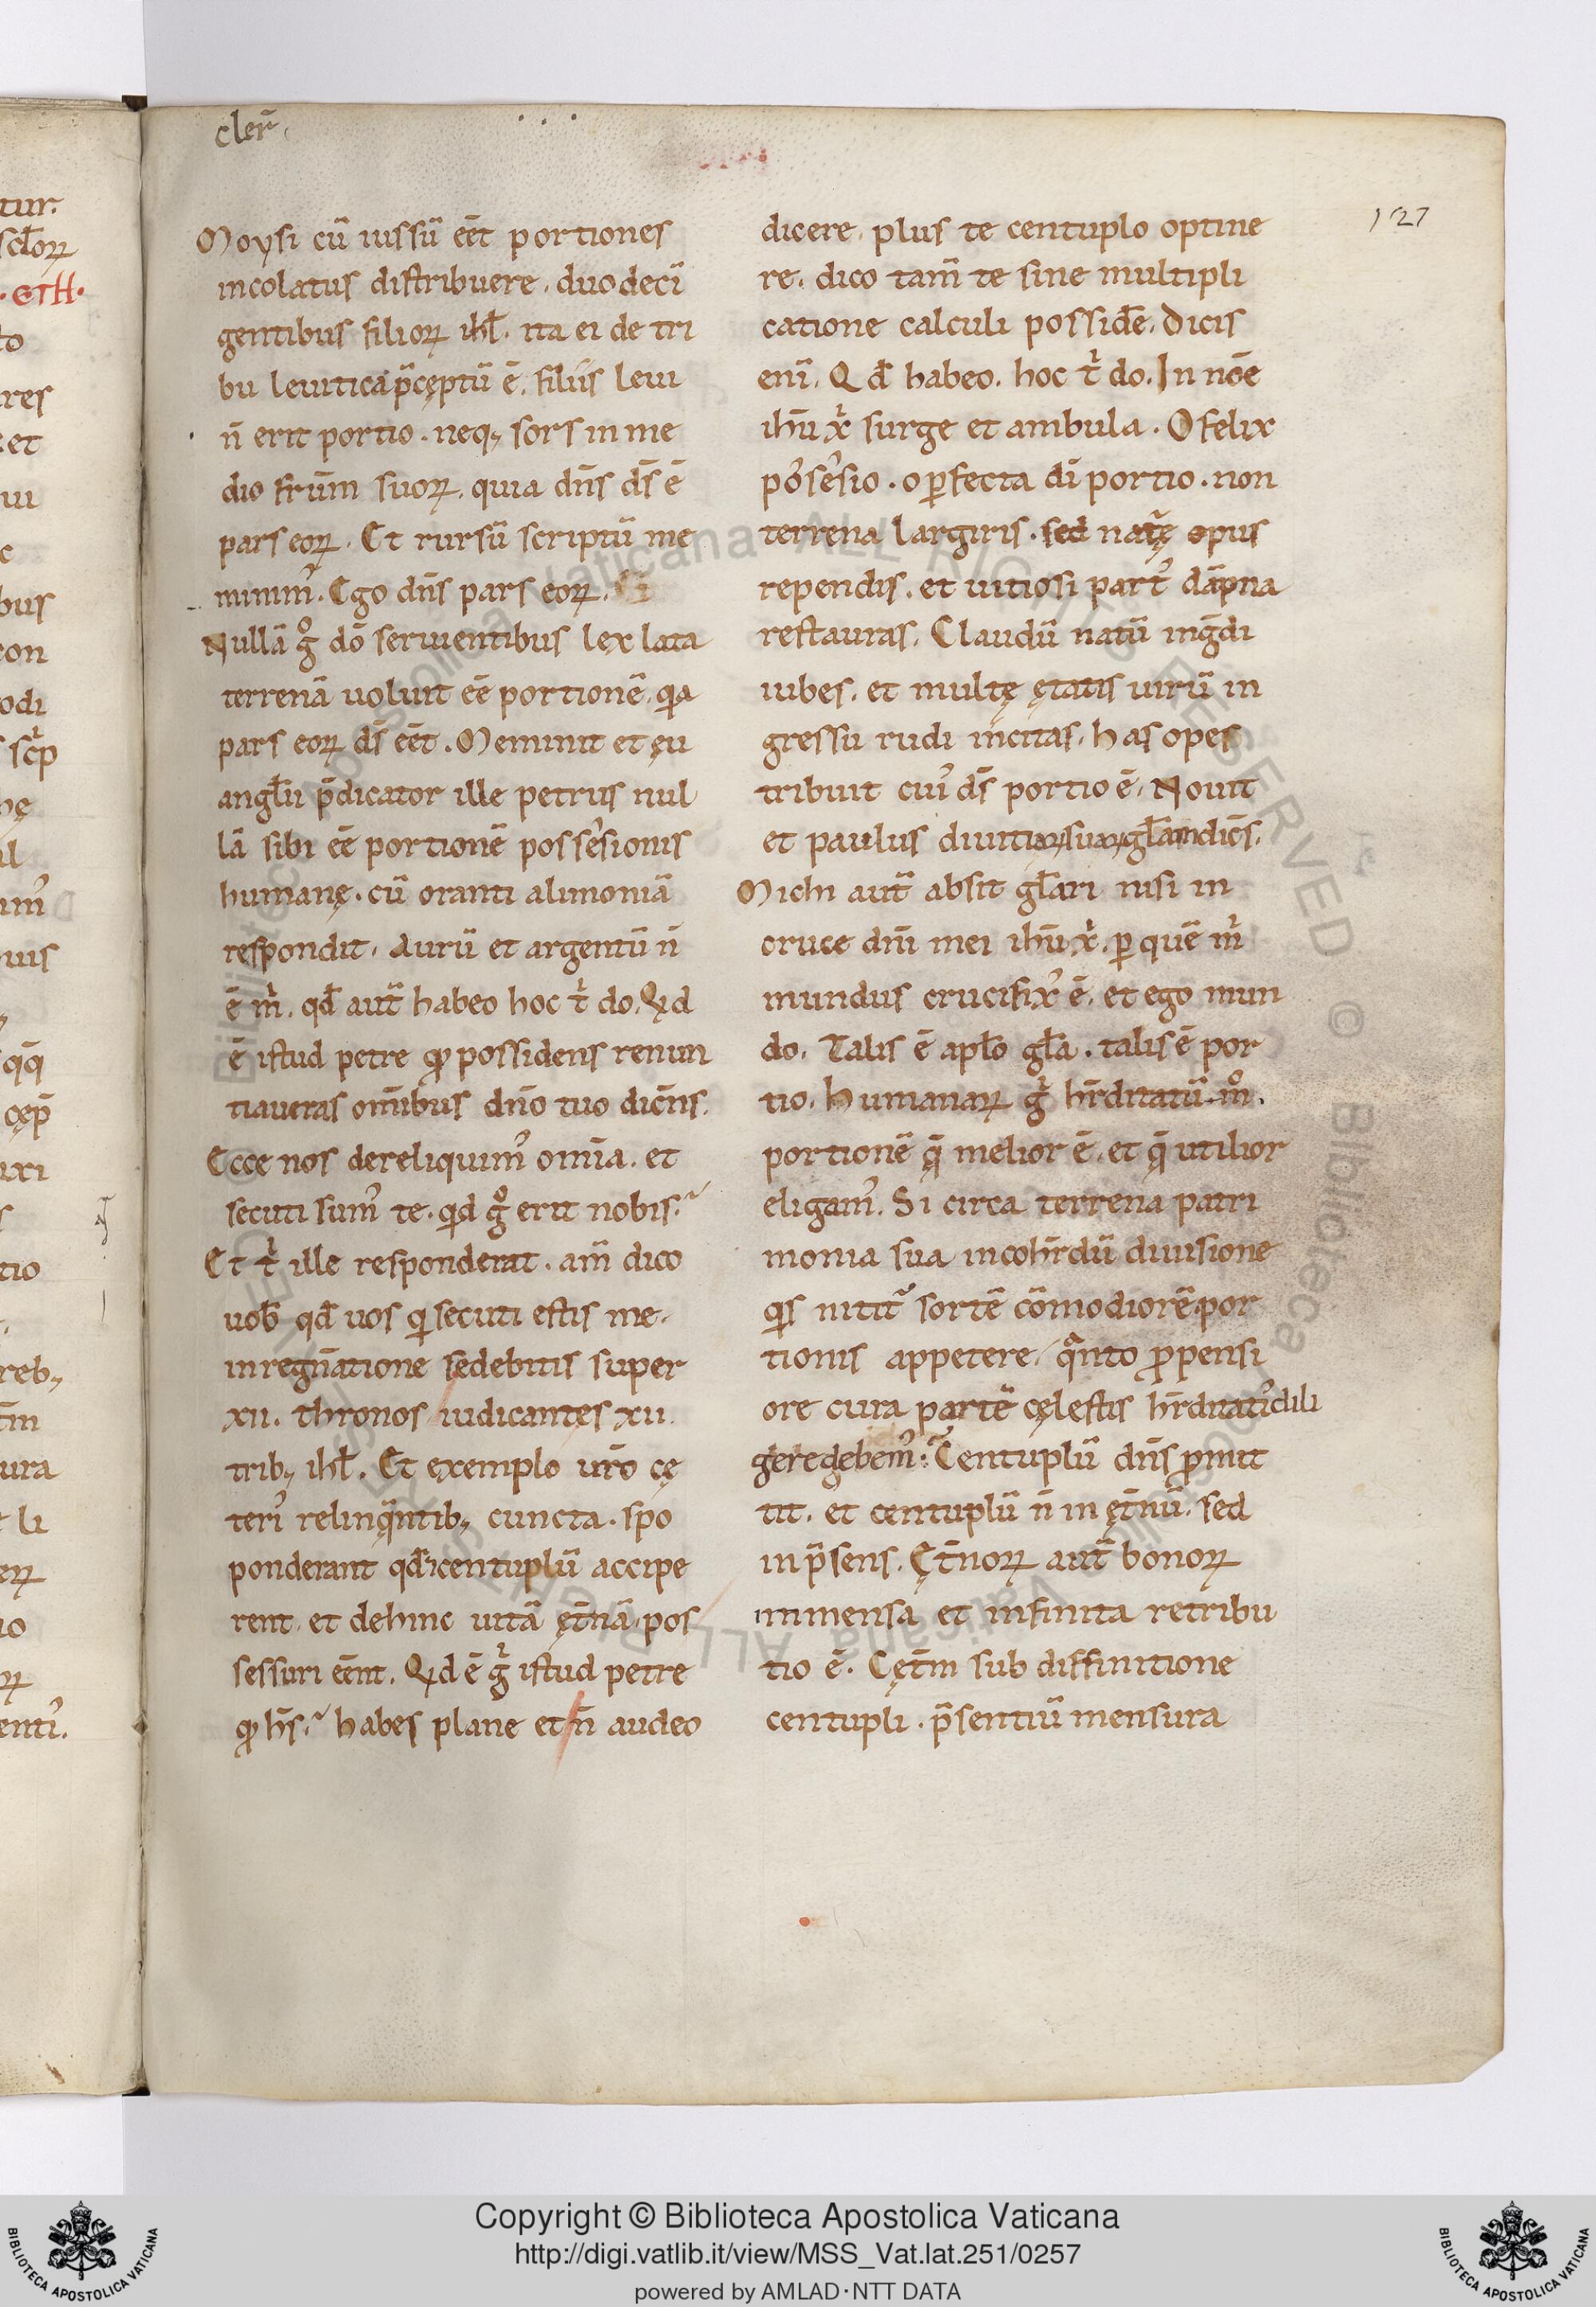 cler̄
Moysi cū iussū eēt portiones
incolatus distribuere. duodecī
gentibus filioꝝ ihl̄. ita ei de tri
bu leuitica p̄cęptū ē. filiis leui
n̄ erit portio. neq; sors in me
dio frūm suoꝝ. quia dn̄s ds̄ ē
pars eoꝝ. Et rursū scriptū me
minim᾽. Ego dn̄s pars eoꝝ.
Nullā gͦ dō seruientibus lex lata
terrenā uoluit eē portionē. qͥa
pars eoꝝ ds̄ eēt. Meminit et ęu
angl̄ii p̄dicator ille petrus nul
lā sibi eē portionē possesionis
humanę. cū oranti alimoniā
respondit. Aurū et argentū n̄
ē mͥ. qd̄ aut̄ habeo hoc tͥ do. Qͥd
ē istud petre qͦ possidens renun
tiaueras om̄ibus dn̄o tuo dicn̄s.
Ecce nos dereliquim᾽ omīa. et
secuti sum᾽ te. qͥd gͦ erit nobis?
Et tͥ ille responderat. am̄ dico
uob̄ qd̄ uos qͥ secuti estis me.
in regn̄atione sedebitis super
xii. thronos iudicantes xii.
trib; ihl̄. Et exemplo ur̄o cę
teri᾽ relinqͣntib; cuncta. spo
ponderant qd̄ centuplū accipe
rent. et dehinc uitā ęt̄nā pos
sessuri eēnt. Qͥd ē gͥ istud petre
qͦ hs̄? habes plane et n̄ audeo
127
dicere. plus te centuplo optine
re. dico tam̄ te sine multipli
catione calculi possidē. Dicis
eni̅. Qd̄ habeo. hoc tͥ do. In noē
ihū xͥ surge et ambula. O felix
posesio. o ꝑfecta dī portio. non
terrena largiris. sed nat᷑ę opus
rependis. et uitiosi part᾽ dāpna
restauras. Claudū natū ingͣdi
iubes. et multę ętatis uirū in
gressu rudi incitas. has opes
tribuit cui᾽ ds̄ portio ē. Nouit
et paulus diuitiaꝝ suaꝝ gl̄am dicn̄s.
Michi aut̄ absit gl̄ari nisi in
cruce dnī mei ihū xͥ. ꝑ quē mͥ
mundus crucifix᾽ ē. et ego mun
do. Talis ē apl̄o gl̄a. talis ē por
tio. Humanaꝝ gͥ hr̄ditatū mͦ.
portionē q̄ melior ē. et q̄ utilior
eligam᾽. Si circa terrena patri
monia sua in cohr̄dū diuisione
qͥs nitit᷑ sortē cōmodiorē por
tionis appetere. qͣnto ꝓpensi
ore cura partē cęlestis hr̄ditati᾽ dili
gere debem᾽? Centuplū dn̄s ꝓmit
tit. et centuplū n̄ in ęt̄nū. sed
in p̄sens. Ęt̄noꝝ aut̄ bonoꝝ
immensa et infinita retribu
tio ē. Cęt̄m sub diffinitione
centupli. p̄sentiū mensura
Copyright © Biblioteca Apostolica Vaticana
http://digi.vatlib.it/view/MSS_Vat.lat.251/0257
powered by AMLAD·NTT DATA